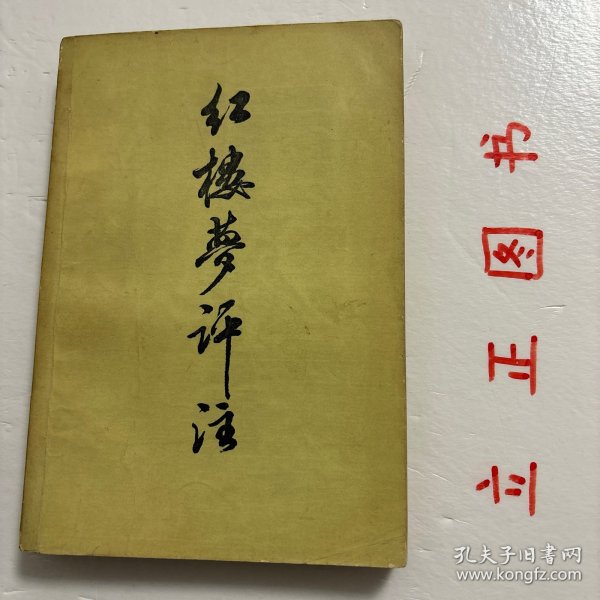 红楼夢评注
立正图书
孔夫子旧书网
www.kongfz.com